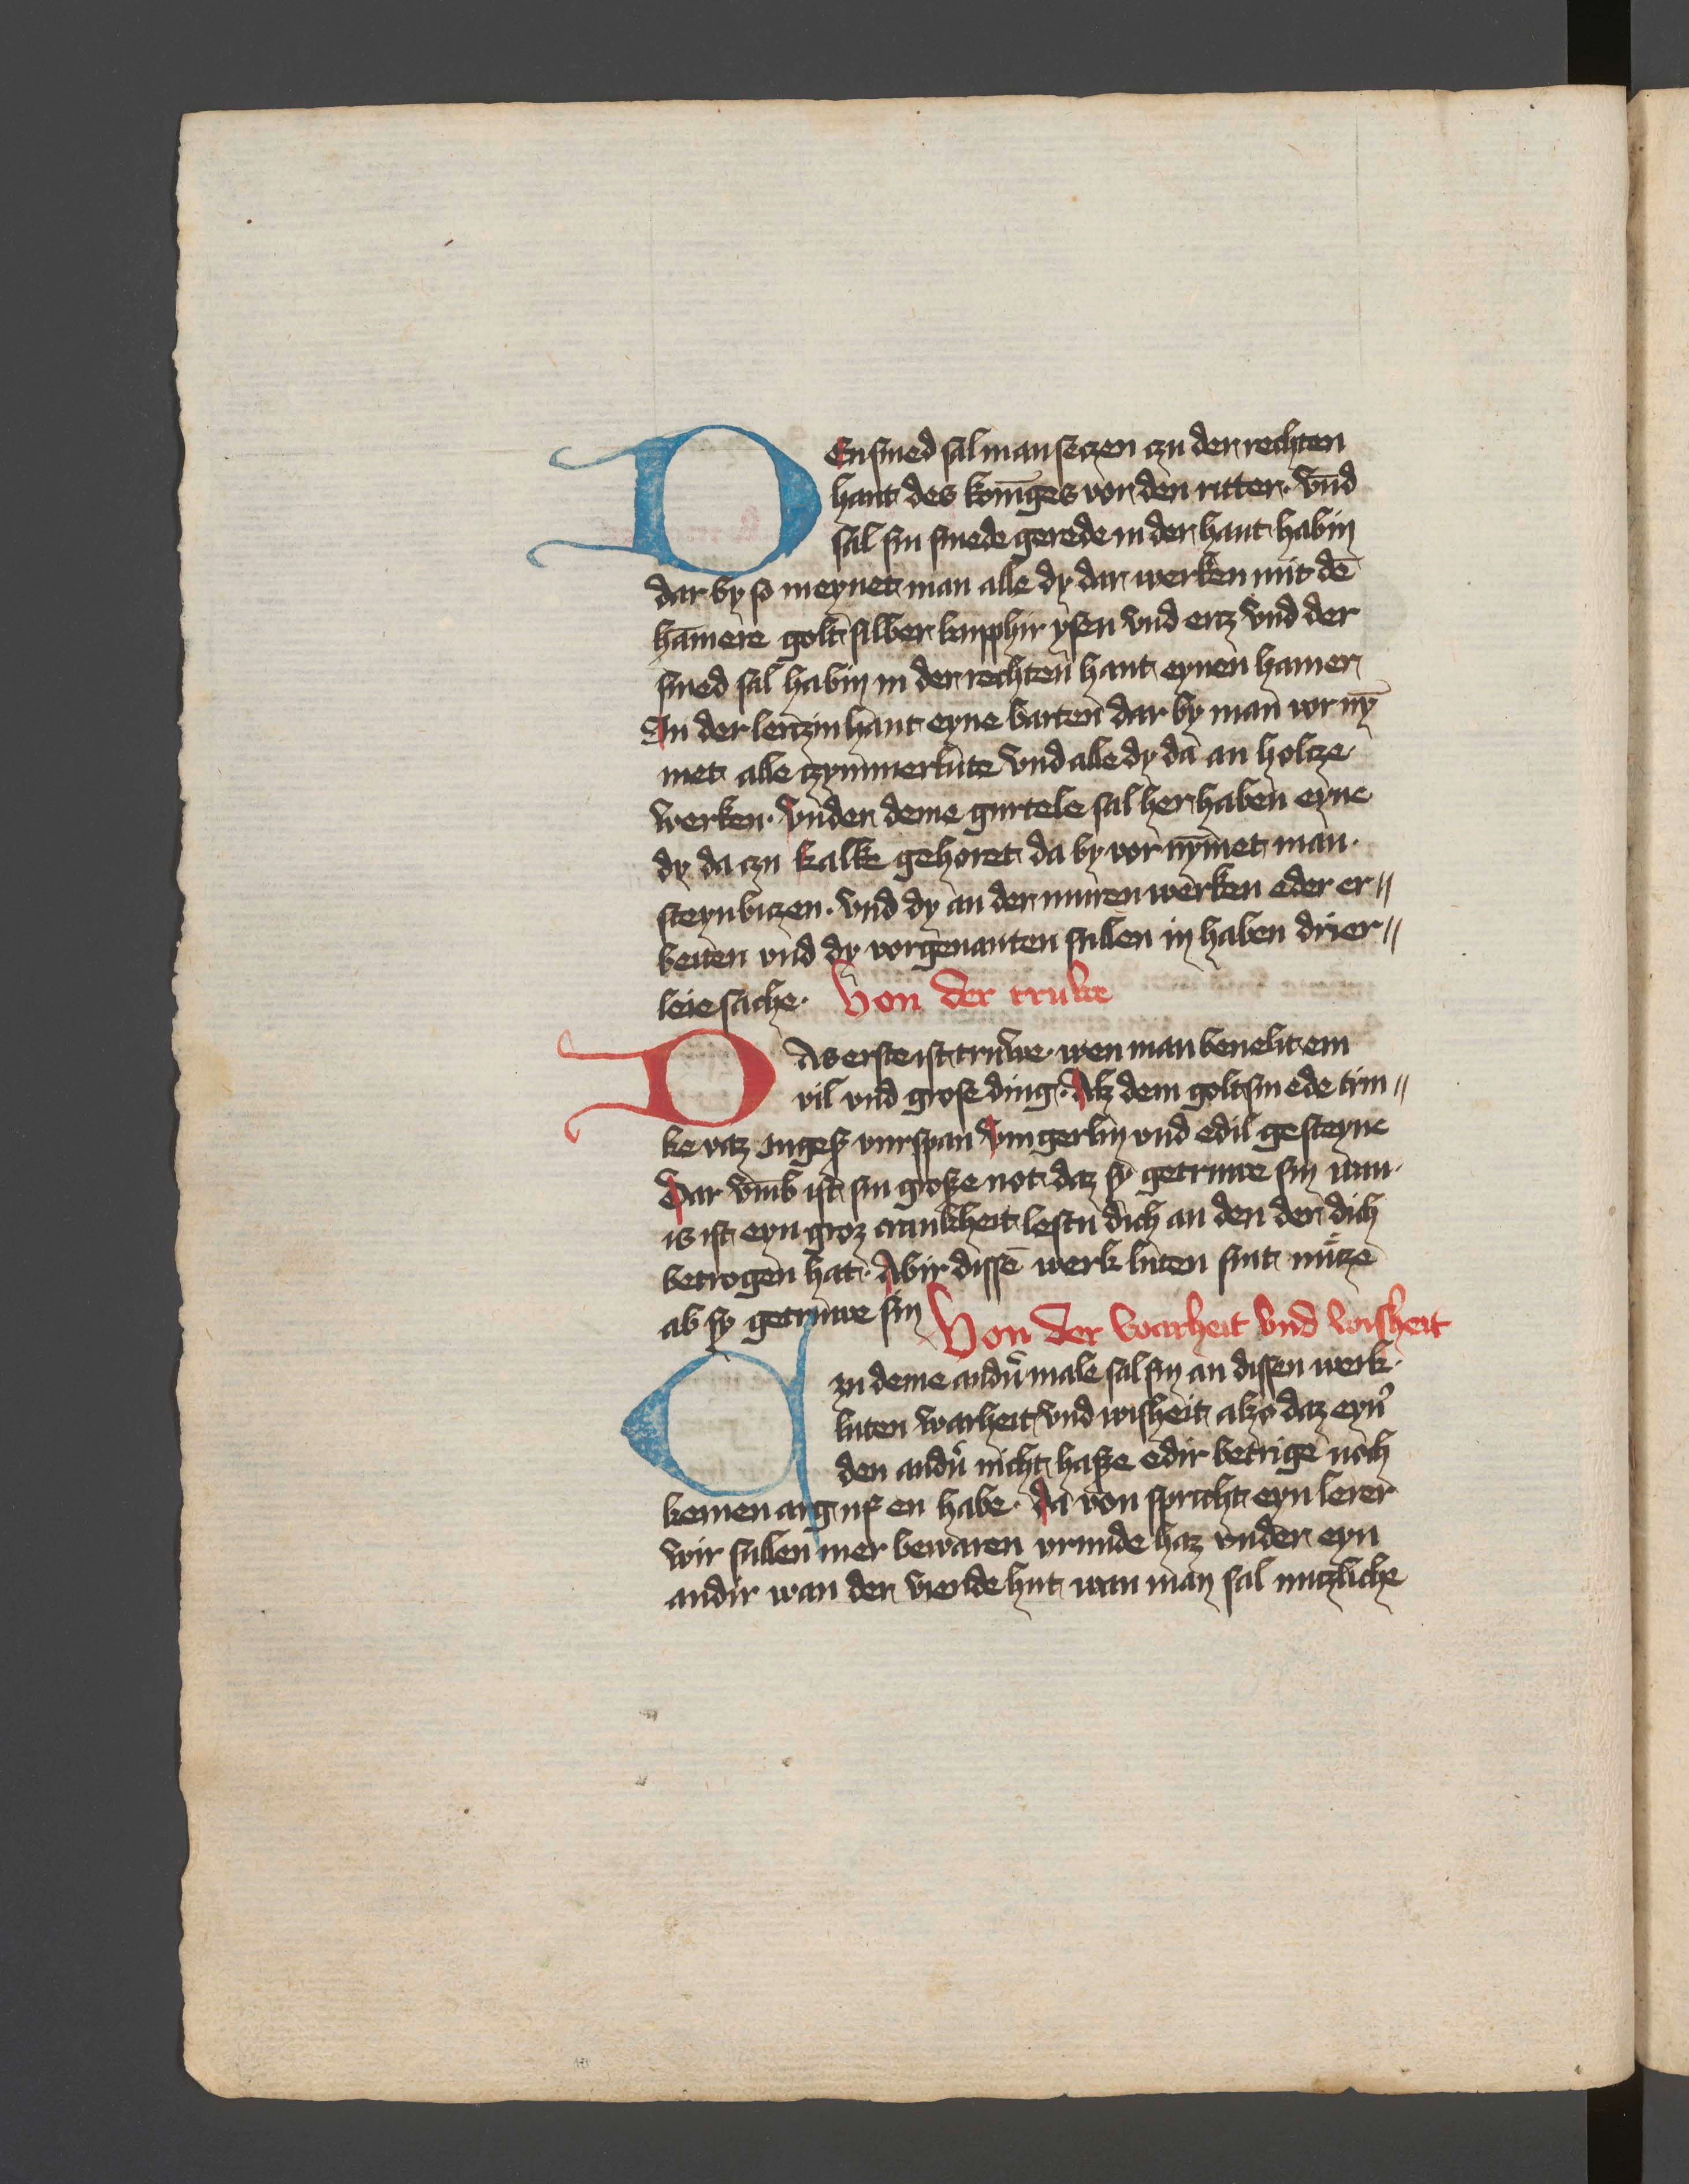 DEn smed sal man seczen czu der rechten
hant des konīges vor den ritter · vnd
sal sin smede gerede in der hant habin
dar by so meynet man alle dy dar werken mit dē
hāmere golt silber kupphir ysen vnd ercz vnd der
smed sal habin in der rechten hant eynen hamer
In der lenczin hant eyne barten dar by man vor nȳ
met alle czymmerlute vnd alle dy da an holcze
werken · Vnder deme gurtele sal her haben eyne
dy da czu kalke gehoret da by vor nȳmet man ·
steynbiczen · vnd dy an der muren werken eder er〃
beiten vnd dy vorgenanten sullen in haben drier〃
leie sache · Von der truwe
DAs erste ist truwe · wen man beuelit em
vil vnd grose ding · Alz dem goltsmede trin〃
ke vaz ingesz vurspan vingerlin vnd edil gesteyne
Dar vmb ist sin grosze not daz sy getruwe sin wan ·
is ist eyn groz crankheit lestu dich an den der dich
betrogen hat · Abir dissē werk luten sint nücze
ab sy getruwe sin Von der warheit vnd wisheit
Czu deme andirn male sal sin an dissen werk ·
luten warheit vnd wisheit also daz eynˀ
den andirn nicht hasze edir betrige noch
keinen arg uf en habe · Da von spricht eyn lerer
wir sullen mer bewaren vrunde haz vnder eyn
andir wan der viende hut wan man sal nuczliche